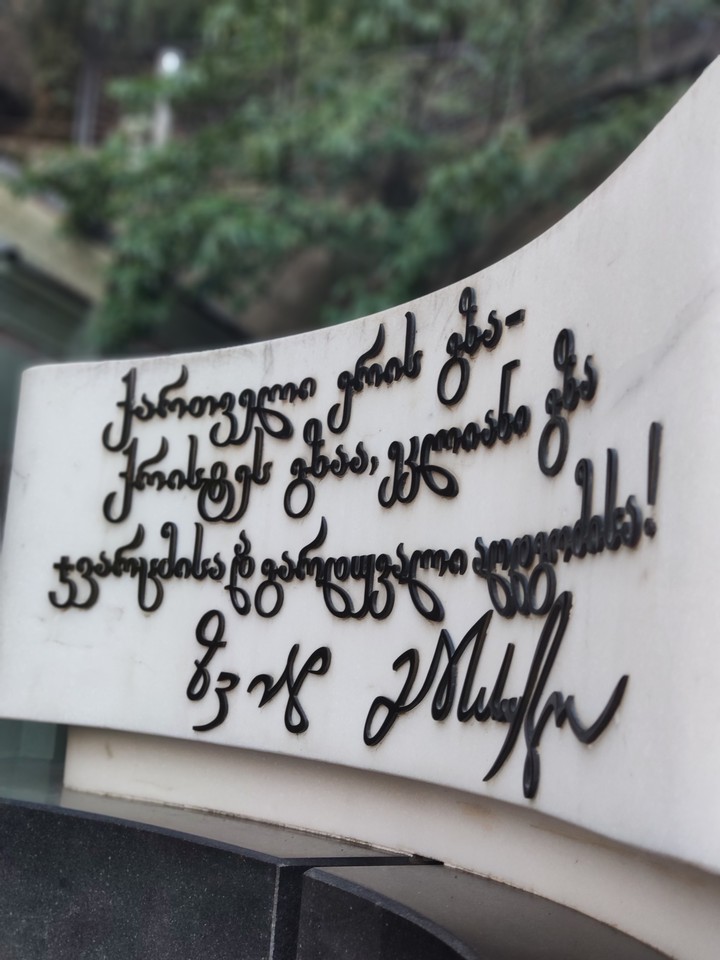 ქართველი ერის გზა-
ქრისტეს გზაა, ეკლიანი გზა
ჯვარცმისა და გარდუვალი აღდგომისა!
ზვიად